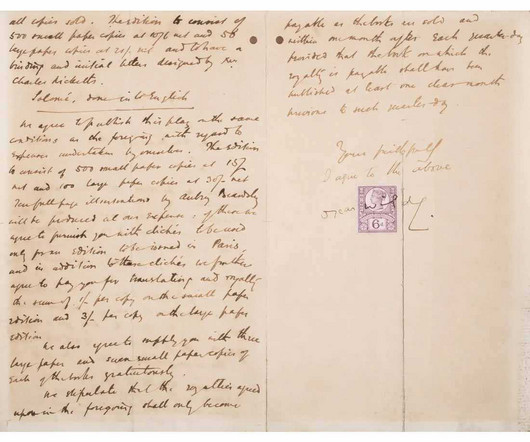 all copies sold. The edition to consist of
500 small paper copies at 10/6 net and 50
large paper copies at 21/- net and to have a
binding and initial letters designed by Mr.
Charles Ricketts.
Salomé, done into English
We agree to publish this play on the same
conditions as the foregoing with regard to
expenses undertaken by ourselves. The edition
to consist of 500 small paper copies at 15/-
net and 100 large paper copies at 30/- net
Ten full page illustrations by Aubrey Beardsley
will be produced at our expense; of these we
agree to furnish you with clichés to be used
only for an edition to be issued in Paris,
and in addition to these clichés we further
agree to pay you for translating and royalty
the sum of 1/- per copy on the small paper
edition and 3/- per copy on the large paper
edition
We also agree to supply you with three
large paper and seven small paper copies of
each of the books gratuitously.
We stipulate that the royalties agreed
upon in the foregoing shall only become
payable as the books are sold and
within one month after each quarter-day
provided that the book on which the
royalty is payable shall have been
published at least one clear month
previous to such quarter-day
Yours faithfully
I agree to the above
Oscar Wilde
6D